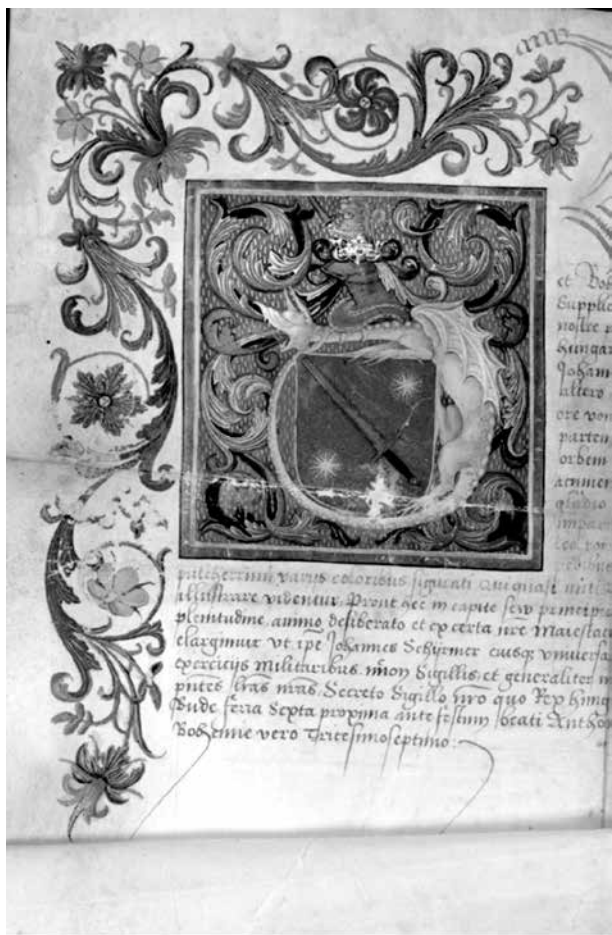 et Boh
Supplic
nostre
hungar
Johan
altero
ore
partem
orbem
acumen
gladio
impar
leo
pulcherrimi varijs coloribus figurati qui quasi
illustrare videntur. Prout hec in capite seu principi
plenitudine, animo deliberato et ex certa nre Maiestat
elargimur ut ipe Johannes Schirmer eiusq vniuersa
exercicijs militaribus, nnon Sigillis, et generaliter in
pntes lras nras, Secreto Sigillo nro quo Rex hung
Bude feria Sexta proxima ante festum beati Anthon
Bohemie vero Tricesimoseptimo